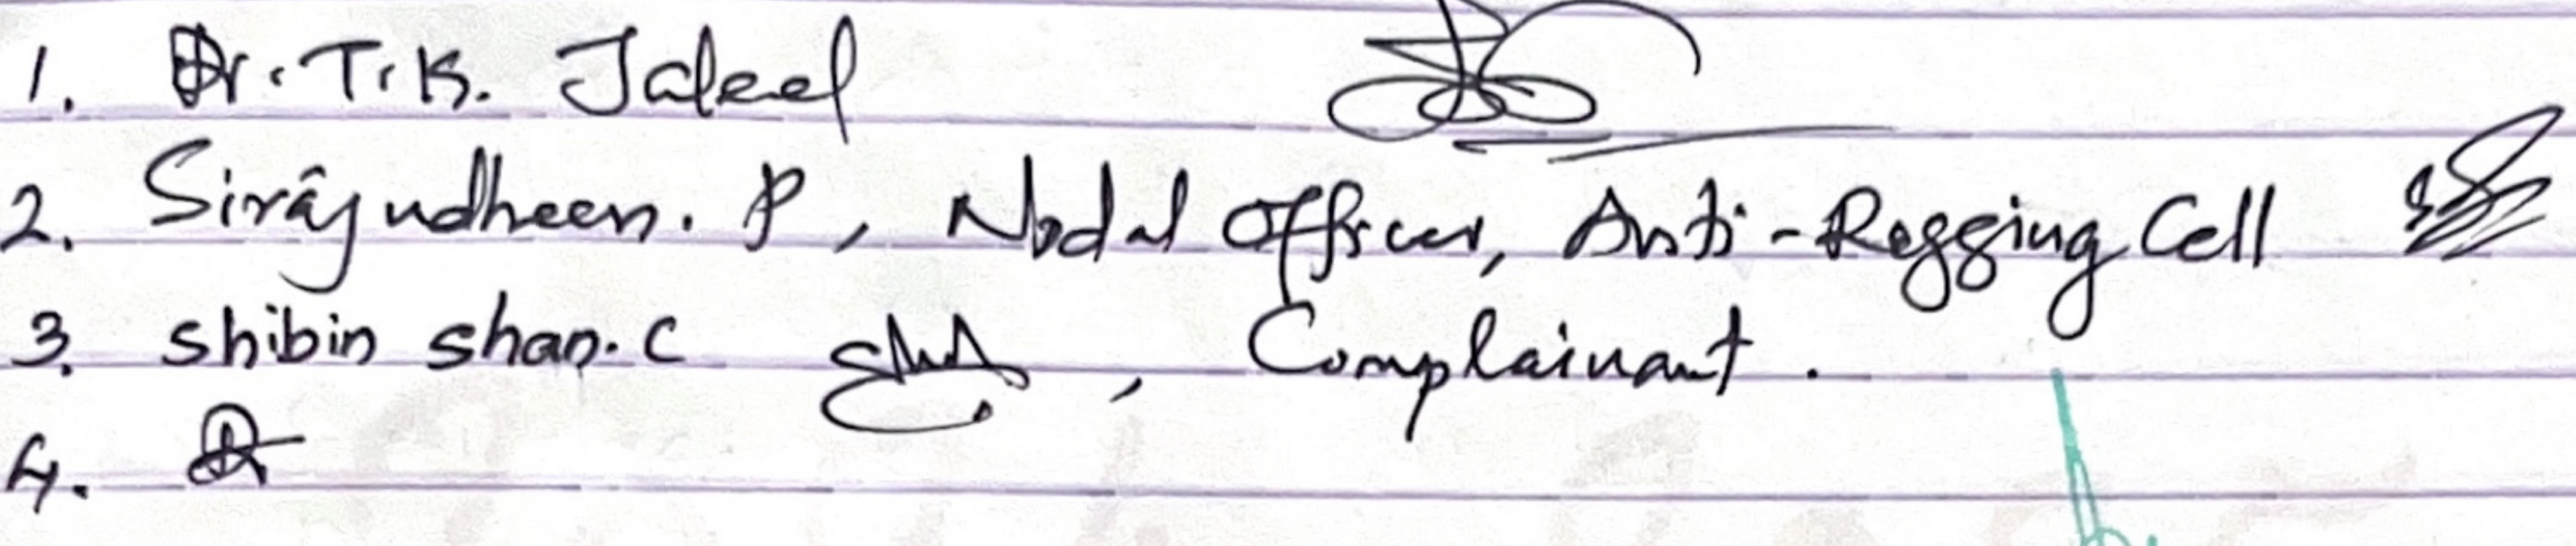 1. Dr. T.K. Jaleel
2. Sirajudheen. P, Nodal Officer, Anti-Ragging Cell
3. Shibin Shan. C , Complainant.
4.